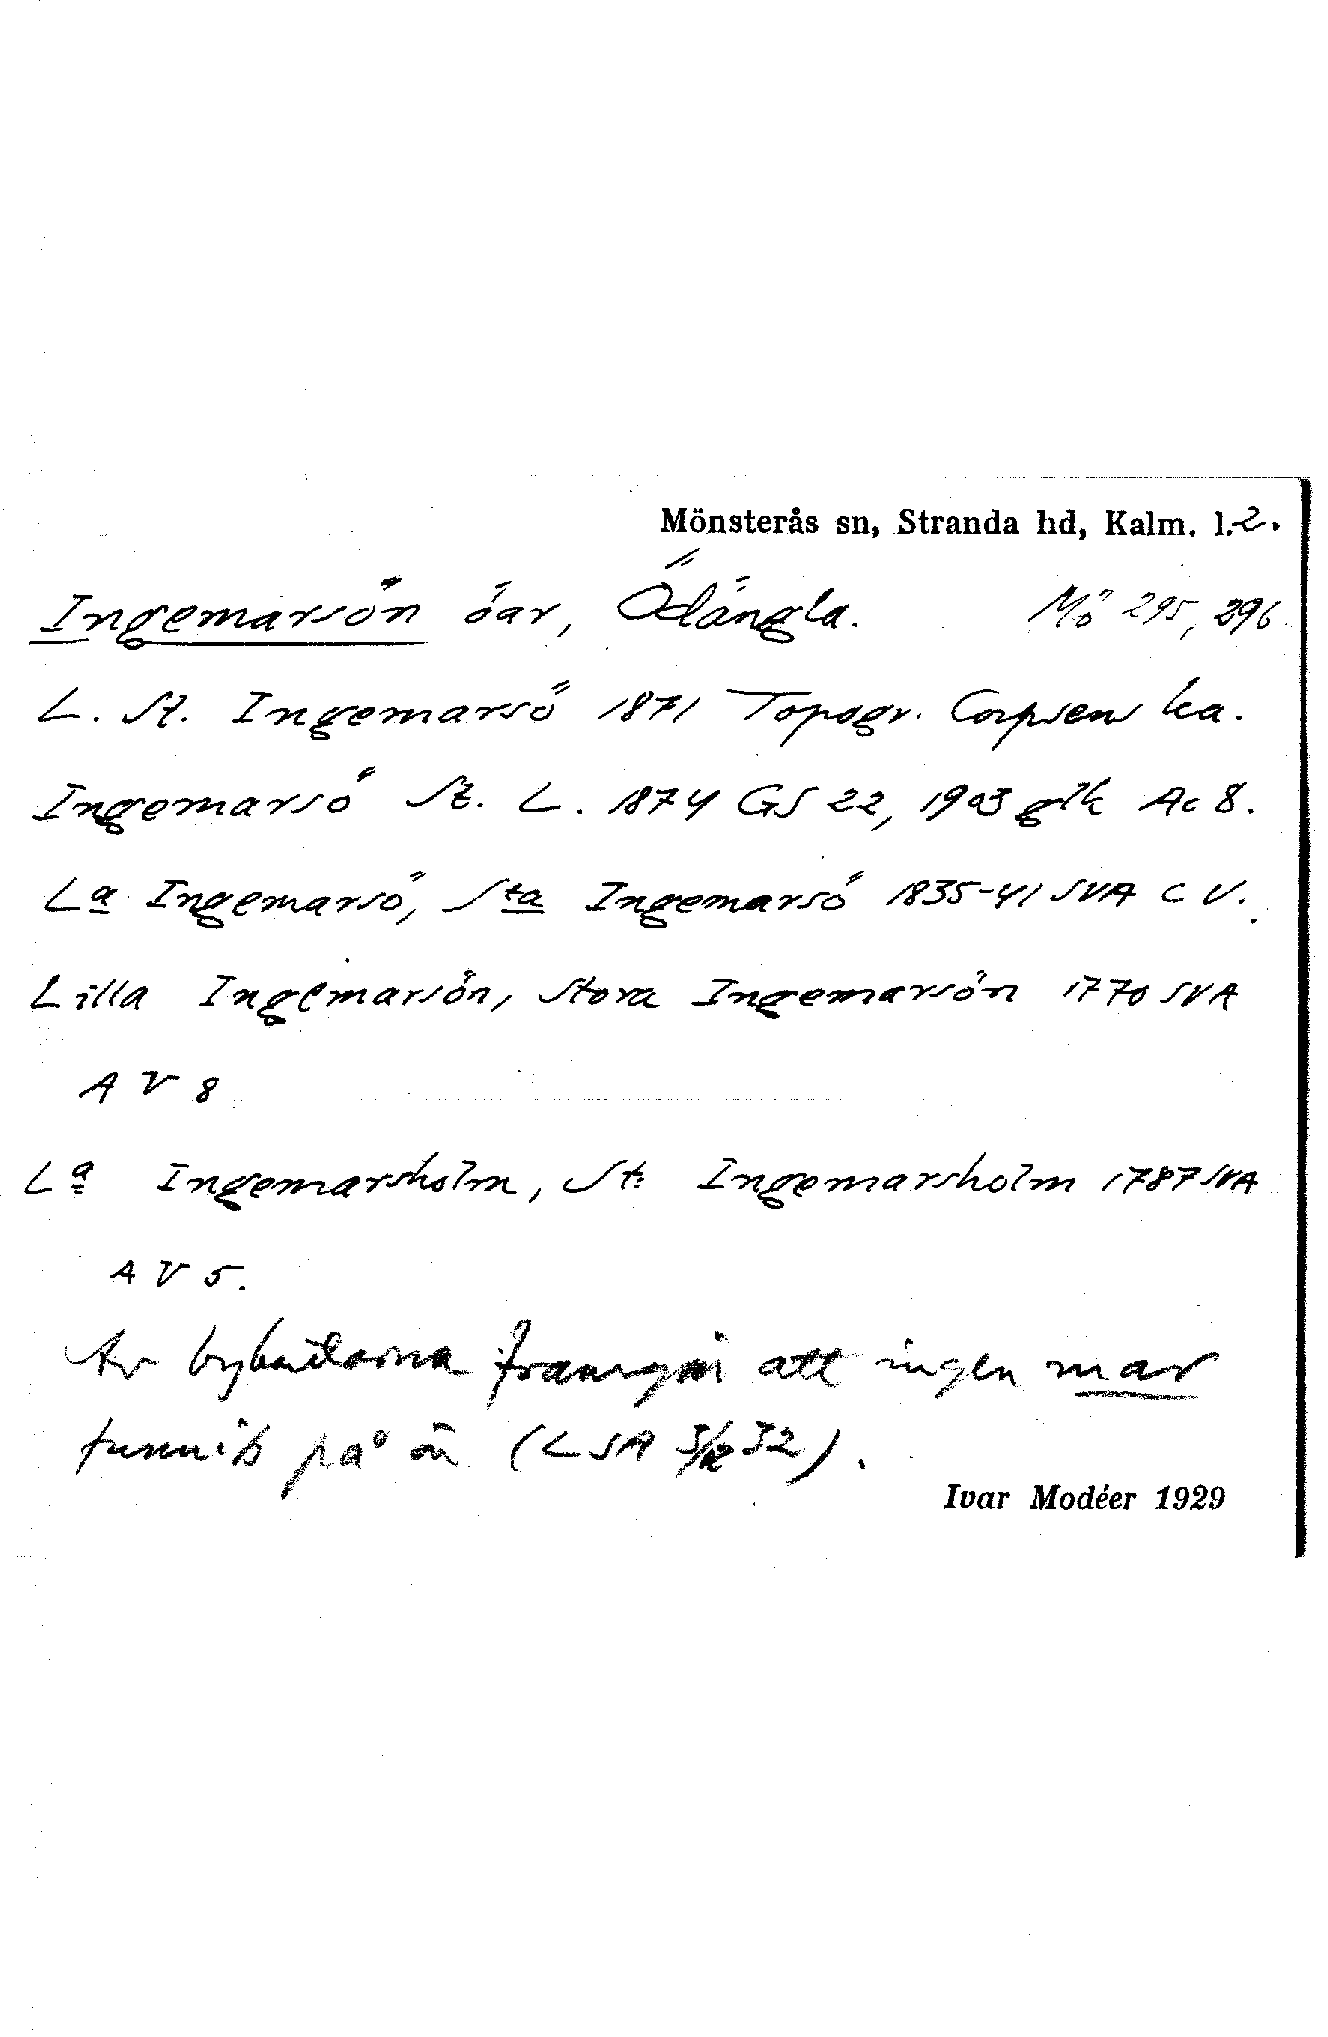 Mönsterås sn, Stranda hd, Kalm. l. 2.
Ingemarsön öar, Ödängla. Mö 295, 296
L. St. Ingemarsö 1871 Topogr. Corpsens ka.
Ingemarsö St. L. 1874 GS 22, 1903 glk Ac 8.
La Ingemarsö, Sta Ingemarsö 1835-41 SVA C V.
Lilla Ingemarsön, Stora Ingemarsön 1770 SVA
A V 8
La Ingemarsholm, St: Ingemarsholm 1787 SVA
A V 5.
Av framgår att ingen mar
funnits på ön (LSA 32).
Ivar Modéer 1929